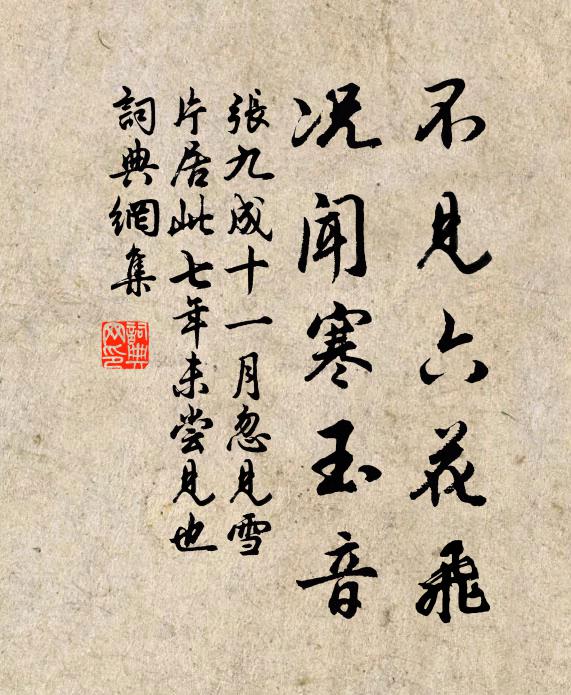 不見六花飛
況聞寒玉音
張九成十一月忽見雪
片居此七年未嘗見也
詞典網集
詞典網印